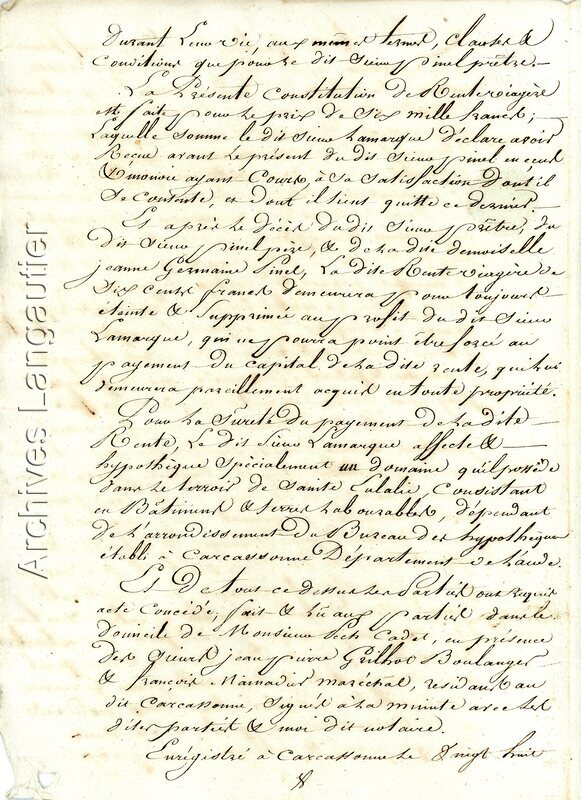 Durant Leur vie, aux mêmes termes, clauses &
Conditions que pour le dit Sieur pinel prêtre.
La Présente Constitution de Rente viagère
est faite pour le prix de Six mille francs;
Laquelle Somme le dit Sieur Lamarque déclare avoir
Reçue avant le présent du dit Sieur pinel en écus
& monoie ayant Cours, à Sa Satisfaction dont il
Se Contente, et dont il tient quitte ce dernier.
Et après le décès du dit Sieur prêtre, du
dit Sieur pinel père, & de la dite demoiselle
jeanne Germaine Pinel, La dite Rente viagère de
Six cents francs demeurera pour toujours
éteinte & Supprimée au profit du dit Sieur
Lamarque, qui ne pourra point être forcé au
payement du capital de la dite rente, qui lui
demeurera pareillement acquis en toute propriété.
Pour la Sureté du payement de la dite
Rente Le dit Sieur Lamarque affecte &
hypothèque Spécialement un domaine qu'il possède
dans le terroir de Sainte Eulalie, Consistant
en Bâtimens & terres Labourables, dépendant
de l'arrondissement du Bureau des hypothèques
établi à Carcassonne Département de l'aude.
Et De tout ce dessus Les Parties ont requis
acte Concédé, fait & lû aux parties dans le
Domicile de Monsieur Pech Cadet, en présence
des Sieurs jean pierre Grilhot Boulanger
& françois Mamadier maréchal, résidant au
dit Carcassonne, Signés à la minute avec les
dites parties & moi dit notaire.
Enrégistré à Carcassonne Le Vingt huit
Archives Langautier